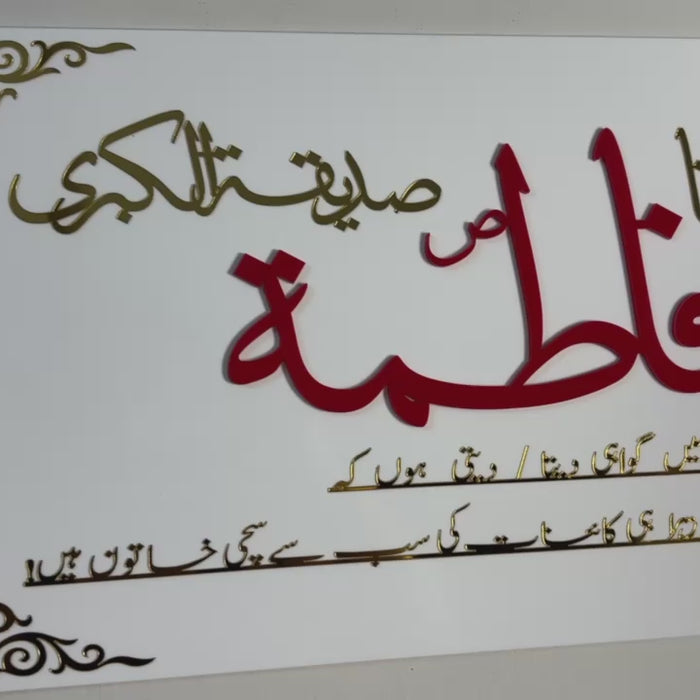 صدیقة الکبری
فاطمة ص
میں گواہی دیتا / دیتی ہوں کہ
زہرا ہی کائنات کی سب سے سچی خاتون ہیں!